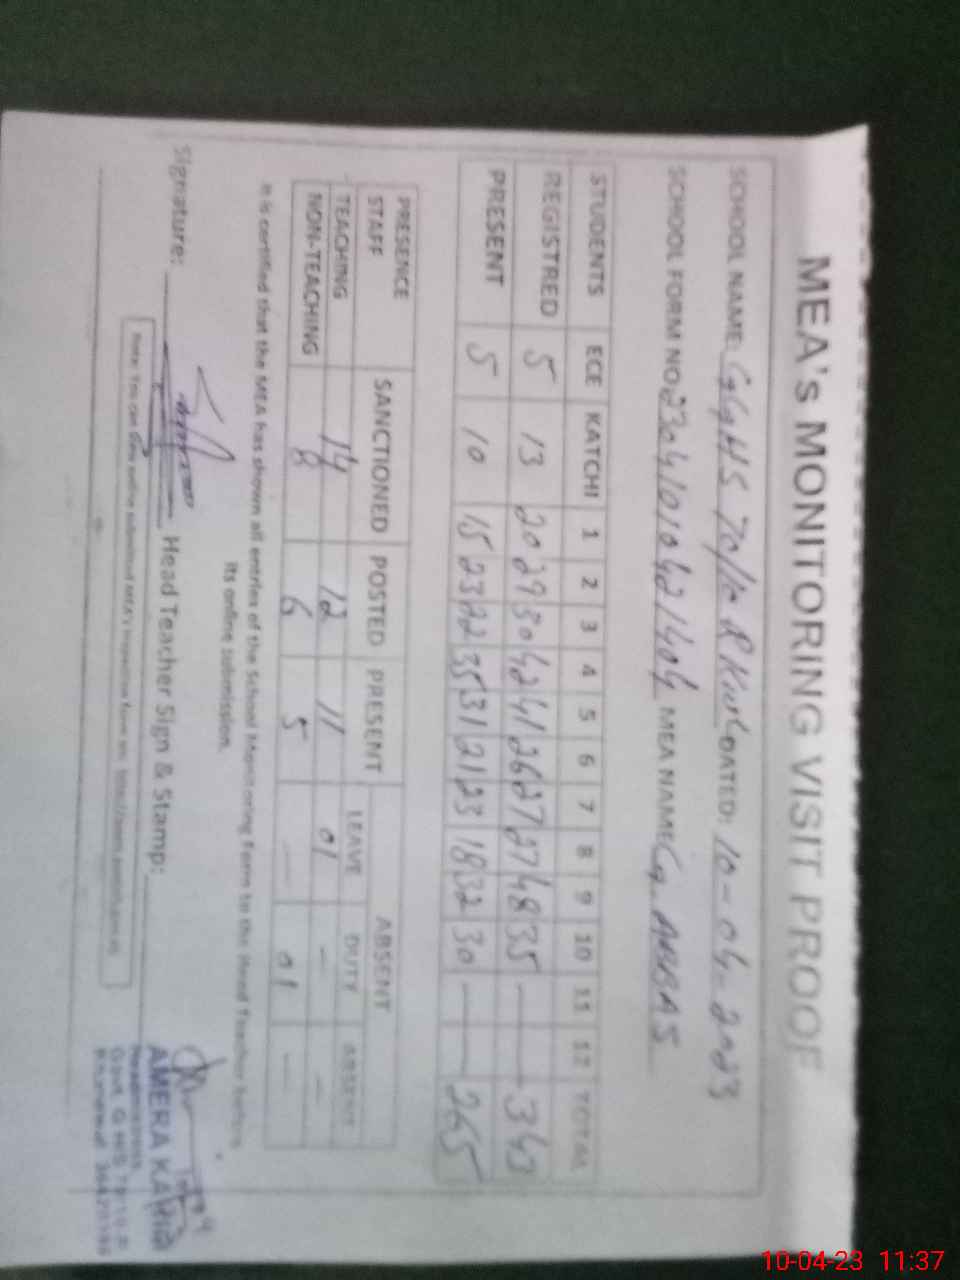 MEA's MONITORING VISIT PROOF
SCHOOL NAME: GGHS 70/10 R DATED: 10-04-2023
SCHOOL FORM NO: 23041010421404 MEA NAME: G. ABBAS
STUDENTS ECE KATCHI 1 2 3 4 5 6 7 8 9 10 11 12 TOTAL
REGISTRED 5 13 20 29 30 42 41 26 27 27 48 35 — — 343
PRESENT 5 10 15 23 22 35 31 21 23 18 32 30 — — 265
PRESENCE STAFF SANCTIONED POSTED PRESENT ABSENT
LEAVE DUTY ABSENT
TEACHING 14 12 11 01 - -
NON-TEACHING 8 6 5 — 01 —
It is certified that the MEA has shown all entries of the School Monitoring Form to the Head Teacher before
its online submission.
Signature: Head Teacher Sign & Stamp:
Note: You can view online submitted MEA's inspection form on:
AMERA KA
Headmistress
Govt. G
Khanewal
10-04-23 11:37